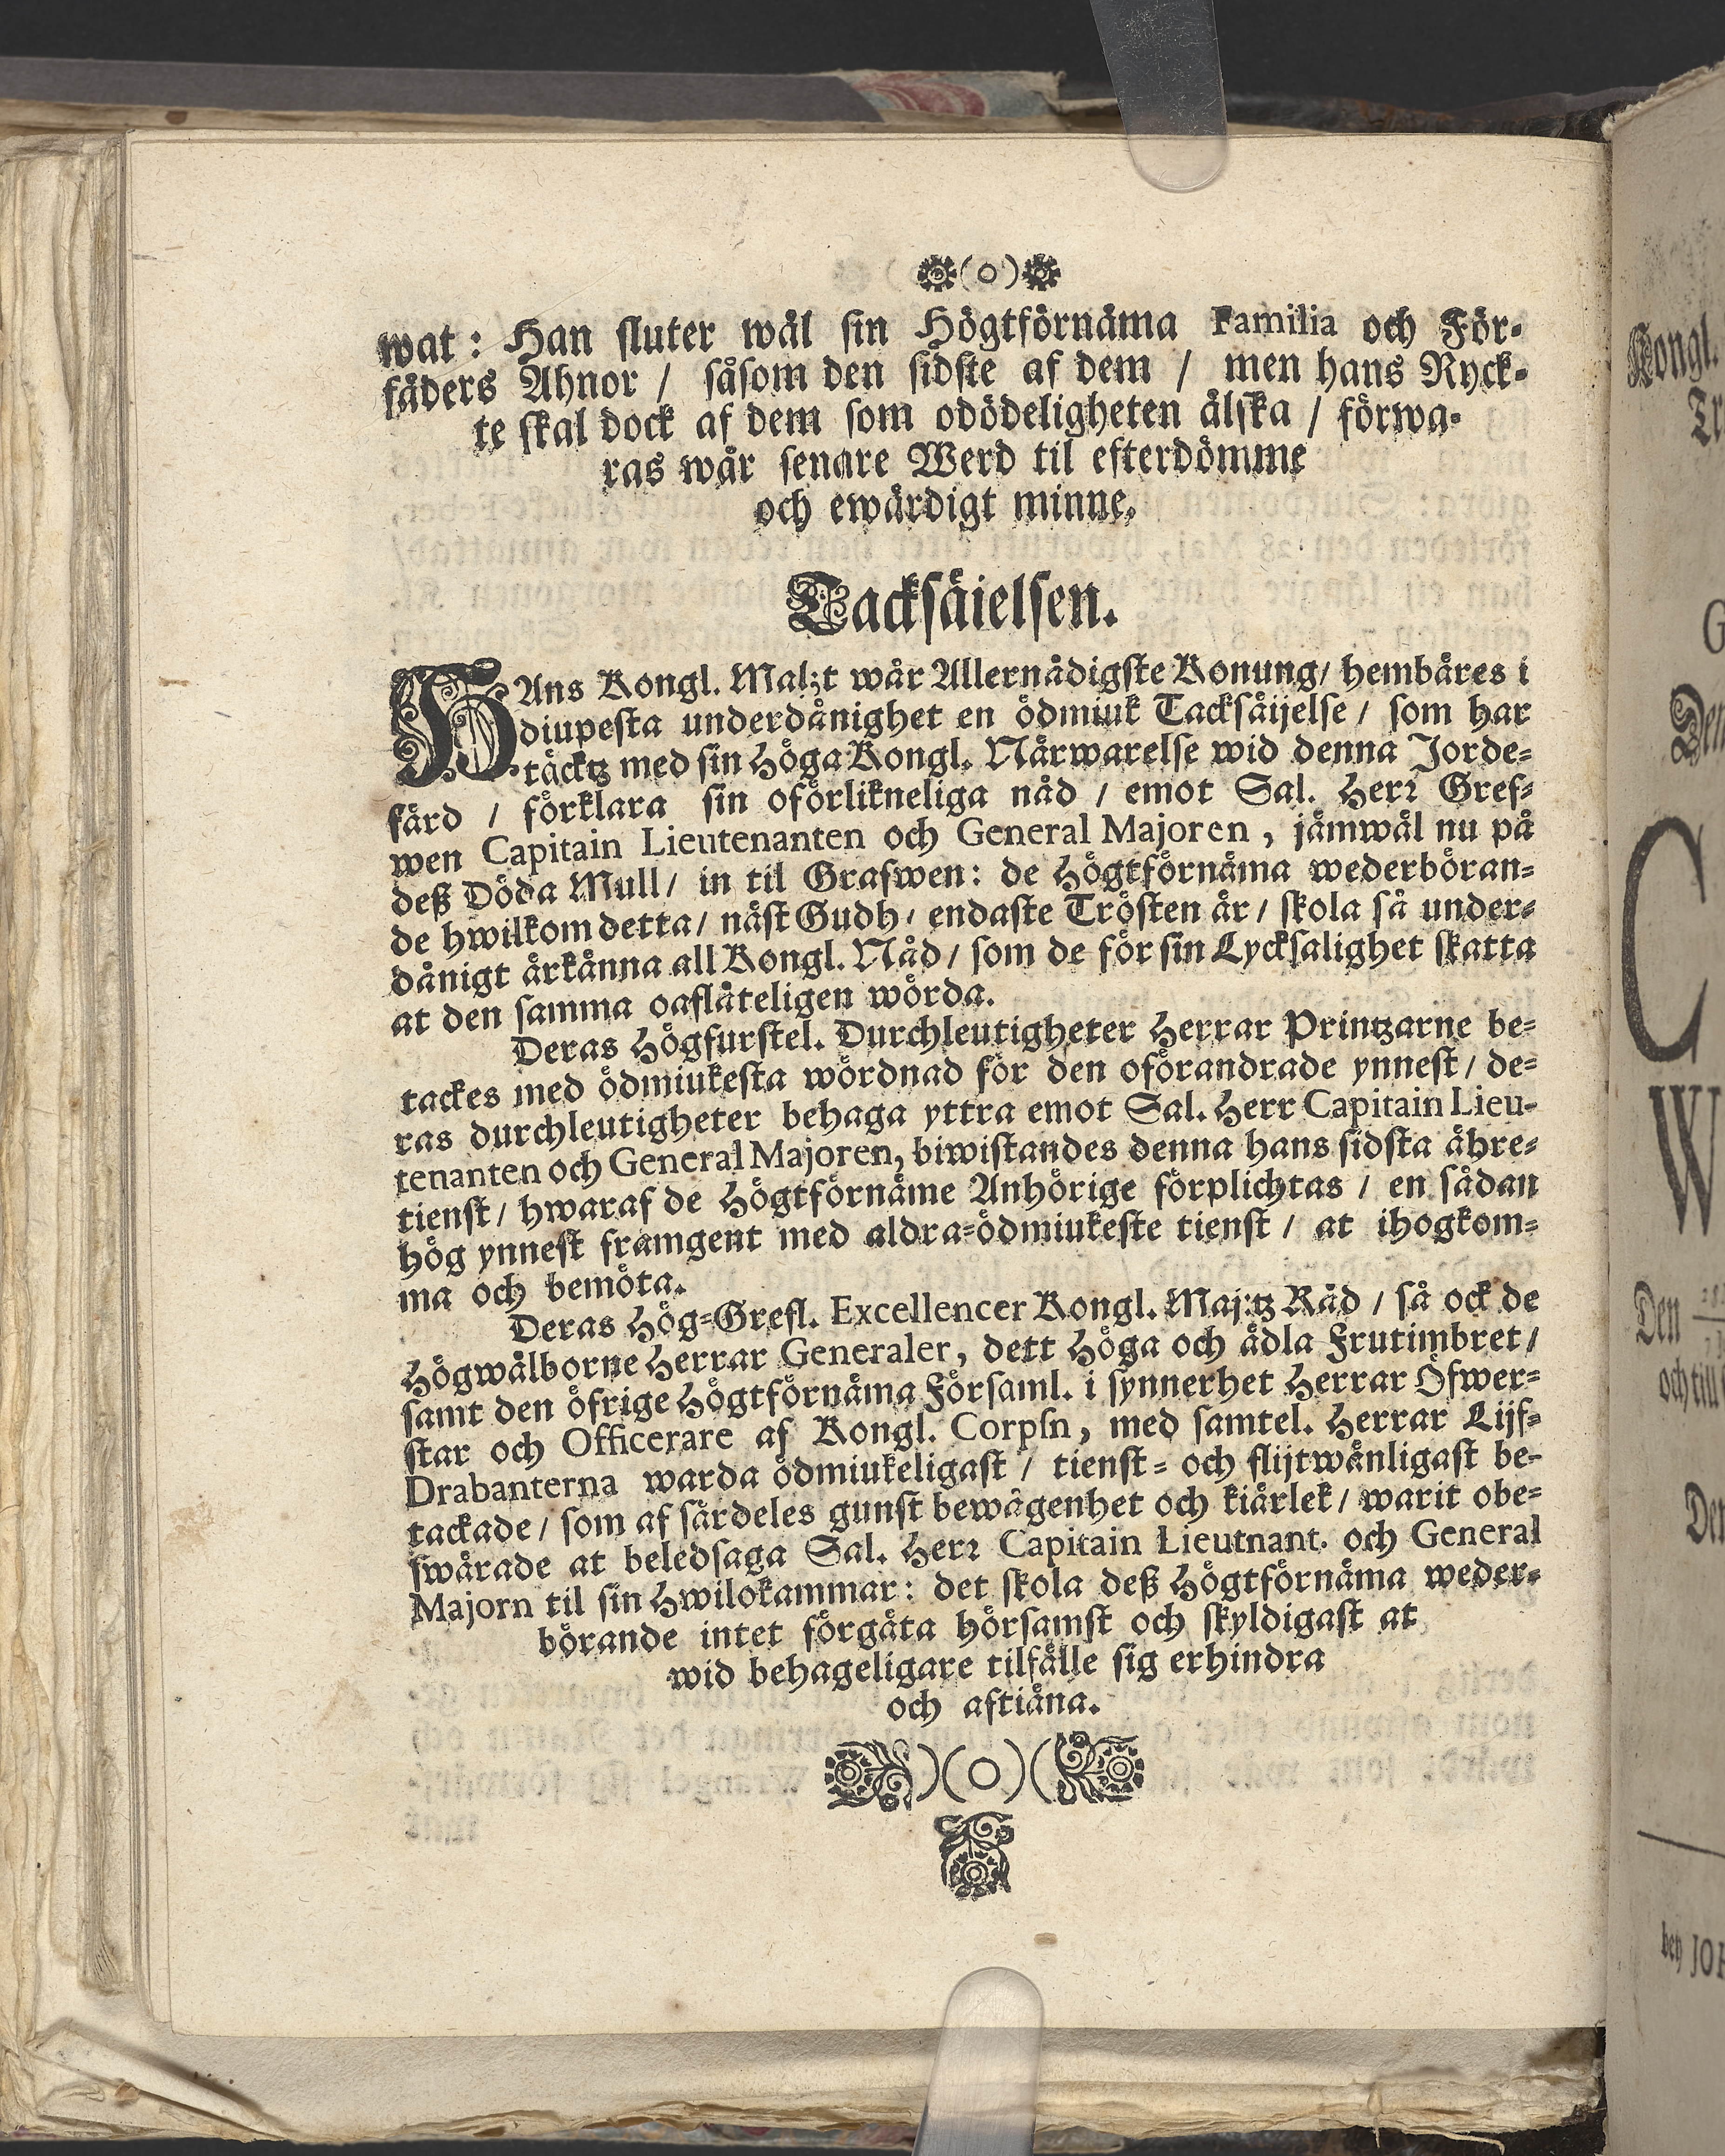 (o)
wat: Han sluter wäl sin Högtförnäma Familia och För-
fäders Ahnor / såsom den sidste af dem / men hans Ryck-
te skal dock af dem som odödeligheten älska / förwa-
ras wår senare Werd til efterdömme
och ewärdigt minne.
Tacksäielsen.
HAns Kongl. Maj:t wår Allernådigste Konung/ hembäres i
diupesta underdånighet en ödmiuk Tacksäijelse / som har
täcktz med sin höga Kongl. Närwarelse wid denna Jorde-
färd / förklara sin oförlikneliga nåd / emot Sal. Herr Gref-
wen Capitain Lieutenanten och General Majoren, jämwäl nu på
deß Döda Mull/ in til Grafwen: de Högtförnäma wederböran-
de hwilkom detta/ näst Gudh/ endaste Trösten är/ skola så under-
dånigt ärkänna all Kongl. Nåd / som de för sin Lycksalighet skatta
at den samma oaflåteligen wörda.
Deras Högfurstel. Durchleutigheter Herrar Printzarne be-
tackes med ödmiukesta wördnad för den oförandrade ynnest / de-
ras durchleutigheter behaga yttra emot Sal. Herr Capitain Lieu-
tenanten och General Majoren, biwistandes denna hans sidsta ähre-
tienst/ hwaraf de Högtförnäme Anhörige förplichtas / en sådan
hög ynnest framgent med aldra-ödmiukeste tienst / at ihogkom-
ma och bemöta.
Deras Hög-Grefl. Excellencer Kongl. Maj:tz Råd / så ock de
Högwälborne Herrar Generaler, dett Höga och ädla Frutimbret /
samt den öfrige Högtförnäma Församl. i synnerhet Herrar Öfwer-
star och Officerare af Kongl. Corpsn, med samtel. Herrar Lijf-
Drabanterna warda ödmiukeligast / tienst- och flijtwänligast be-
tackade / som af särdeles gunst bewägenhet och kiärlek/ warit obe-
swärade at beledsaga Sal. Herr Capitain Lieutnant. och General
Majorn til sin Hwilokammar: det skola deß Högtförnäma weder-
börande intet förgäta hörsamst och skyldigast at
wid behageligare tilfälle sig erhindra
och aftiäna.
)(o)(
Kongl.
Den
W
Den
och till
bey JOH